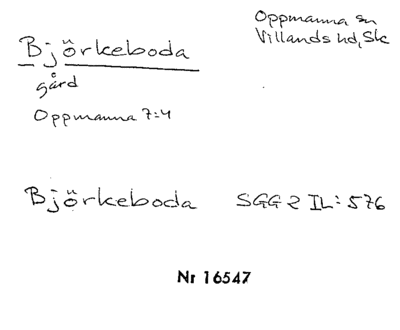 Oppmanna sn
Villands hd, Sk
Björkeboda
gård
Oppmanna 7:4
Björkeboda SGG 2 IL:576
Nr 16547